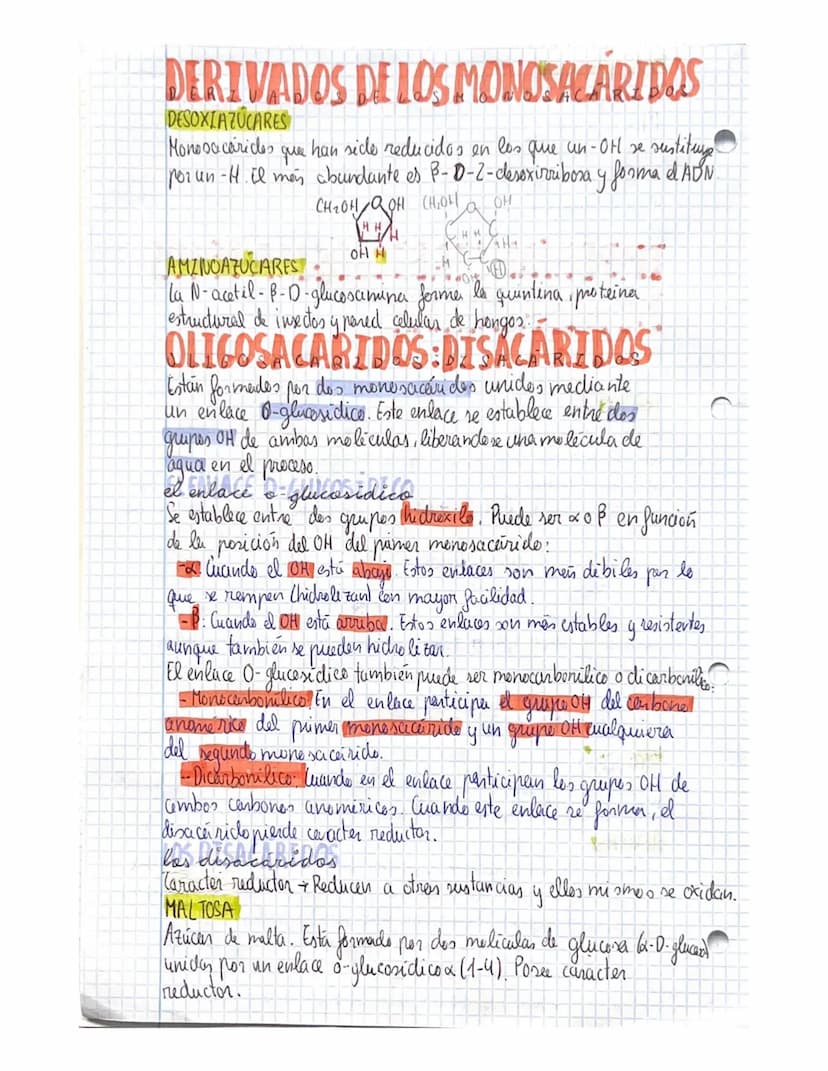 DERIVADOS DE LOS MONOSACÁRIDOS
DESOXIAZÚCARES
Monosacáridos que han sido reducidos en los que un -OH se sustituye
por un -H. El más abundante es β-D-2-desoxirribosa y forma el ADN
CH2OH O OH CH2OH O OH
H H H H H H
OH H OH H
AMINOAZÚCARES
La N-acetil-β-D-glucosamina forma la quintina, proteína
estructural de insectos y pared celular de hongos.
OLIGOSACARIDOS: DISACÁRIDOS
Están formados por dos monosacáridos unidos mediante
un enlace O-glucosídico. Este enlace se establece entre dos
grupos OH de ambas moléculas, liberándose una molécula de
agua en el proceso.
el enlace o-glucosídico
Se establece entre dos grupos hidroxilo. Puede ser α o β en función
de la posición del OH del primer monosacárido:
-α: Cuando el OH está abajo. Estos enlaces son más débiles por lo
que se rompen (hidrolizan) con mayor facilidad.
-β: Cuando el OH está arriba. Estos enlaces son más estables y resistentes
aunque también se pueden hidrolizar.
El enlace O-glucosídico también puede ser monocarbonílico o dicarbonílico:
-Monocarbonílico: En el enlace participa el grupo OH del carbono
anomérico del primer monosacárido y un grupo OH cualquiera
del segundo monosacárido.
-Dicarbonílico: Cuando en el enlace participan los grupos OH de
ambos carbonos anoméricos. Cuando este enlace se forma, el
disacárido pierde caracter reductor.
los disacáridos
Caracter reductor → Reducen a otras sustancias y ellos mismos se oxidan.
MALTOSA
Azúcar de malta. Está formado por dos moléculas de glucosa (α-D-glucosa)
unidas por un enlace o-glucosídico α (1-4). Posee caracter
reductor.